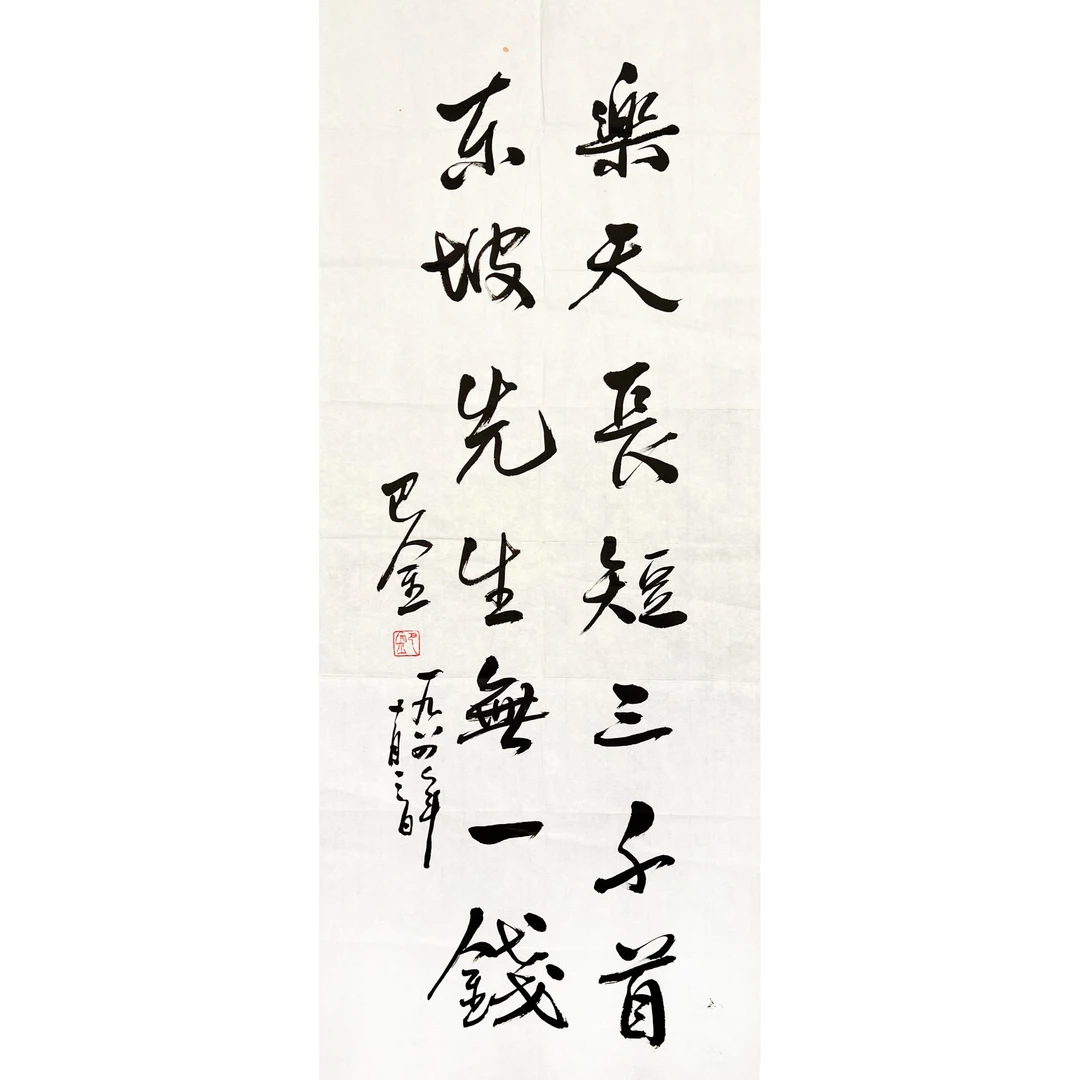 樂天長短三千首
东坡先生無一錢
巴金
巴金
一九八四年
十月三日